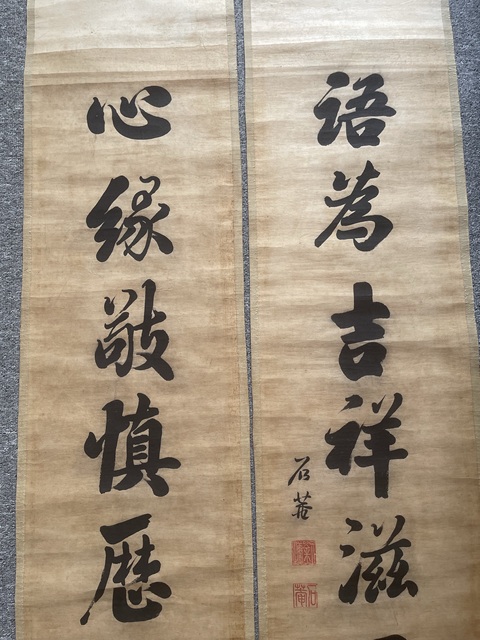 語為吉祥滋
石菴
石菴
心緣敬慎歷